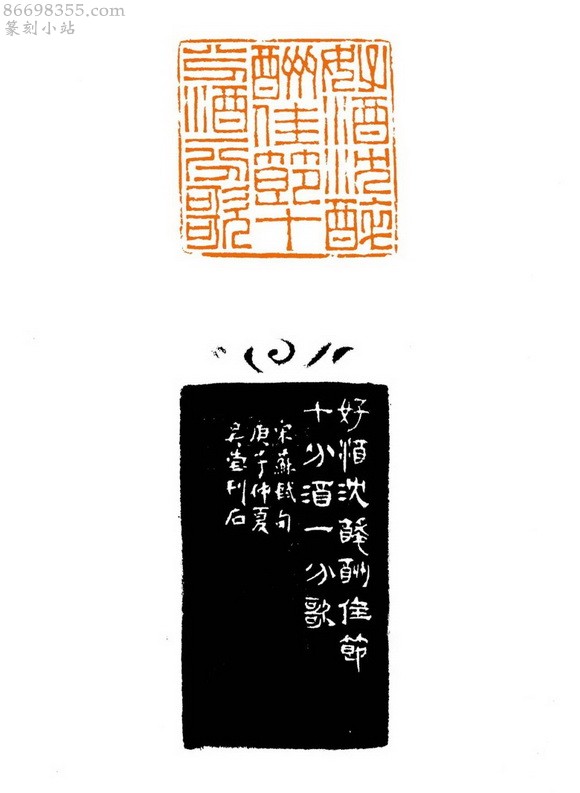 86698355.com
篆刻小站
好酒沈醉
酬佳節十
分酒一分歌
好酒沈醉酬佳節
十分酒一分歌
宋蘇軾句
庚子仲夏
刊石